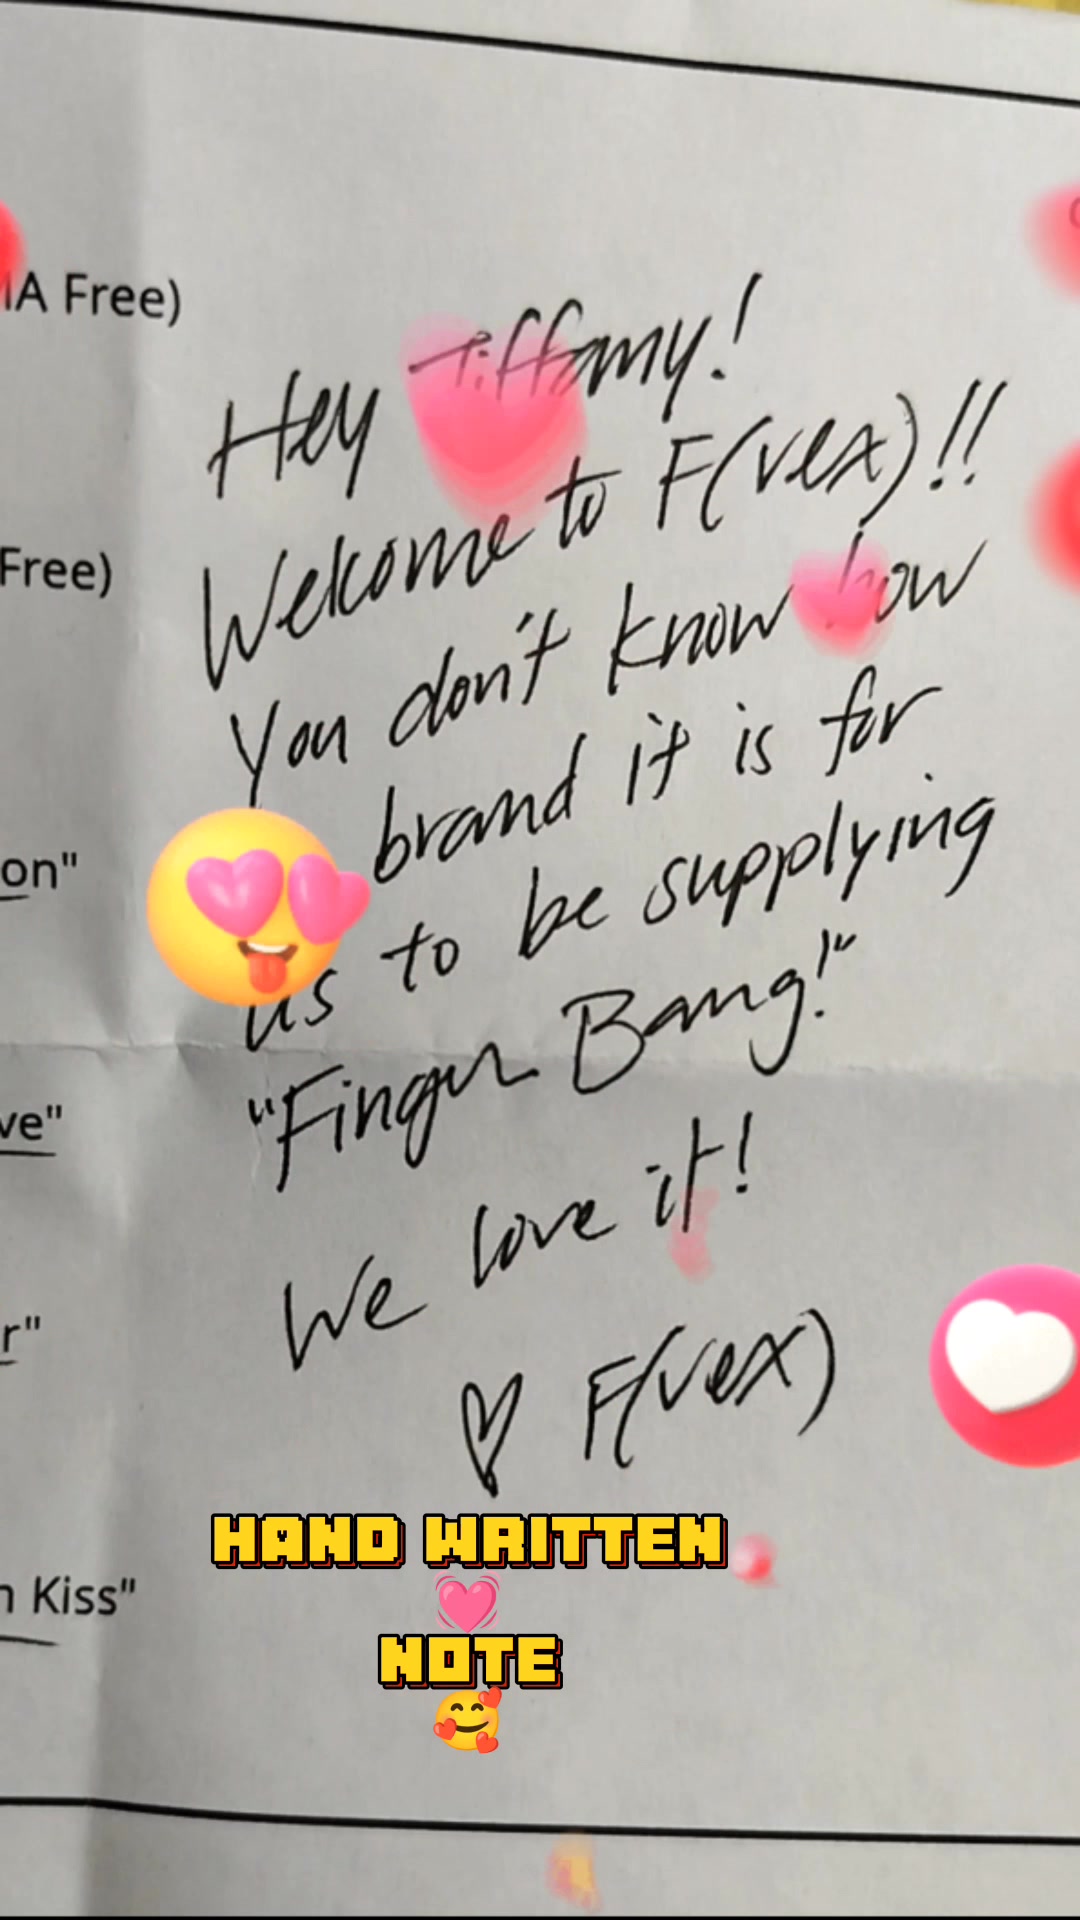 IA Free)
Hey Tiffany!
Welcome to F(vex)!!
Free)
You don't know how
brand it is for
on"
us to be supplying
"Finger Bang!"
ve"
We love it!
r"
♡ F(vex)
HAND WRITTEN
💓
NOTE
🥰
n Kiss"